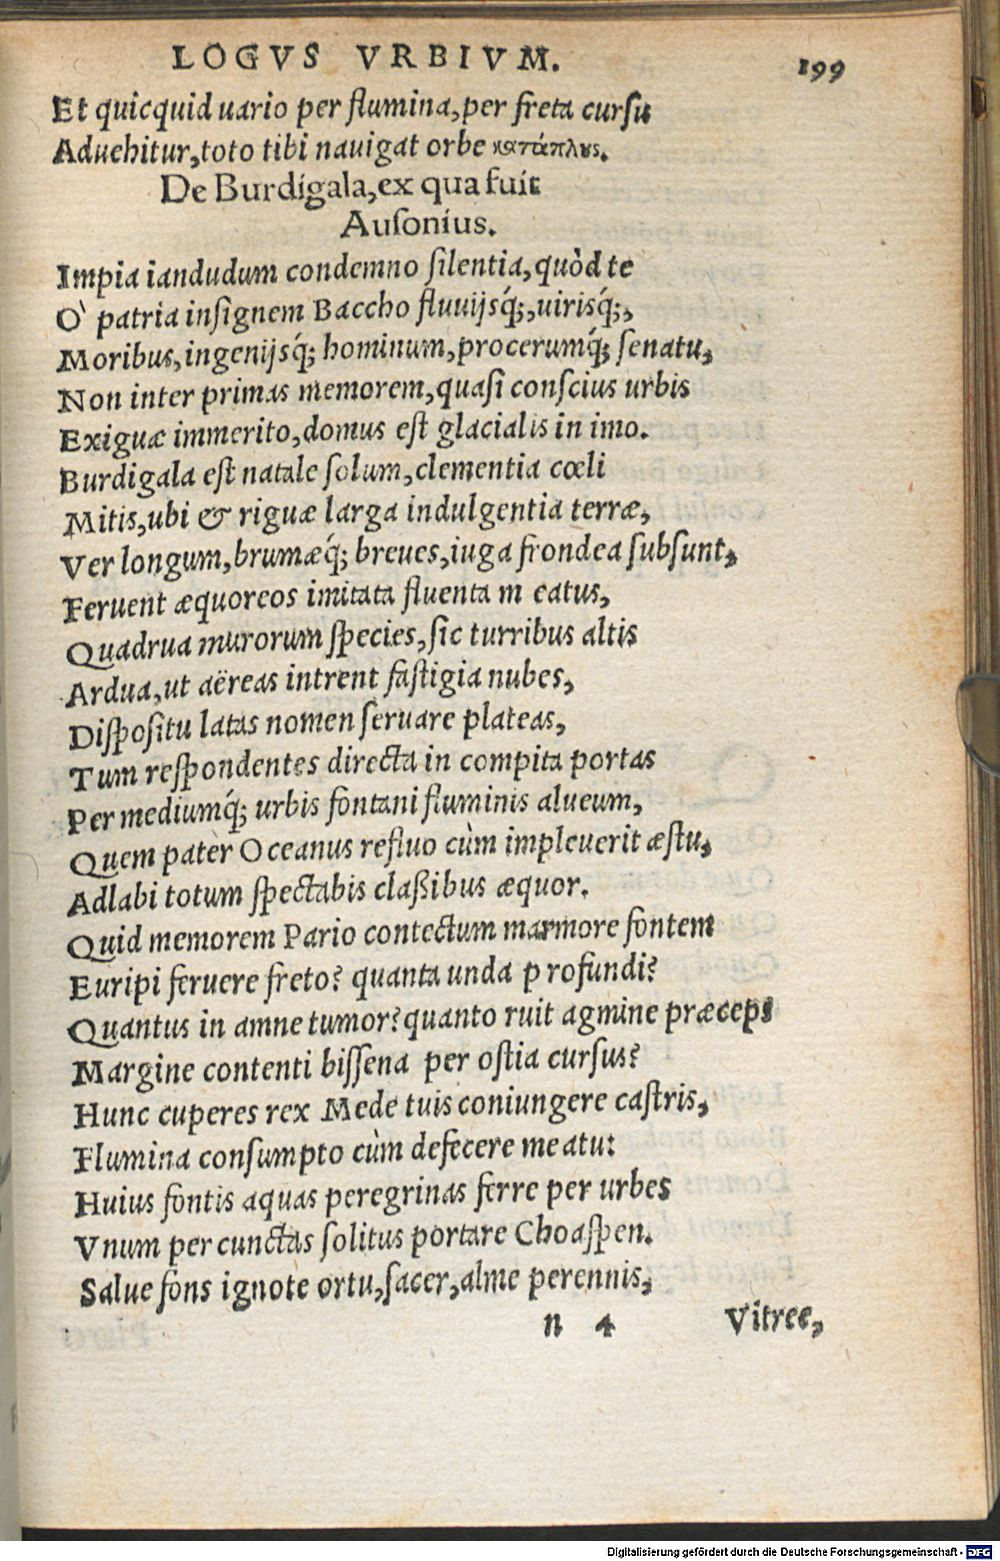 LOGVS VRBIVM. 199
Et quicquid uario per flumina, per freta cursu
Aduehitur, toto tibi nauigat orbe κατάπλυς.
De Burdigala, ex qua fuit
Ausonius.
Impia iandudum condemno silentia, quòd te
O' patria insignem Baccho fluuijsq́;, uirisq́;,
Moribus, ingenijsq́; hominum, procerumq́; senatu,
Non inter primas memorem, quasi conscius urbis
Exiguæ immerito, domus est glacialis in imo.
Burdigala est natale solum, clementia cœli
Mitis, ubi & riguæ larga indulgentia terræ,
Ver longum, brumæq́; breues, iuga frondea subsunt,
Feruent æquoreos imitata fluenta m eatus,
Quadrua murorum species, sic turribus altis
Ardua, ut aëreas intrent fastigia nubes,
Dispositu latas nomen seruare plateas,
Tum respondentes directa in compita portas
Per mediumq́; urbis fontani fluminis alueum,
Quem pater Oceanus refluo cùm impleuerit æstu,
Adlabi totum spectabis claßibus æquor.
Quid memorem Pario contectum marmore fontem
Euripi feruere freto? quanta unda profundi?
Quantus in amne tumor? quanto ruit agmine præceps
Margine contenti bissena per ostia cursus?
Hunc cuperes rex Mede tuis coniungere castris,
Flumina consumpto cùm defecere meatu:
Huius fontis aquas peregrinas ferre per urbes
Vnum per cunctas solitus portare Choaspen.
Salue fons ignote ortu, sacer, alme perennis,
n 4 Vitree,
Digitalisierung gefördert durch die Deutsche Forschungsgemeinschaft - DFG